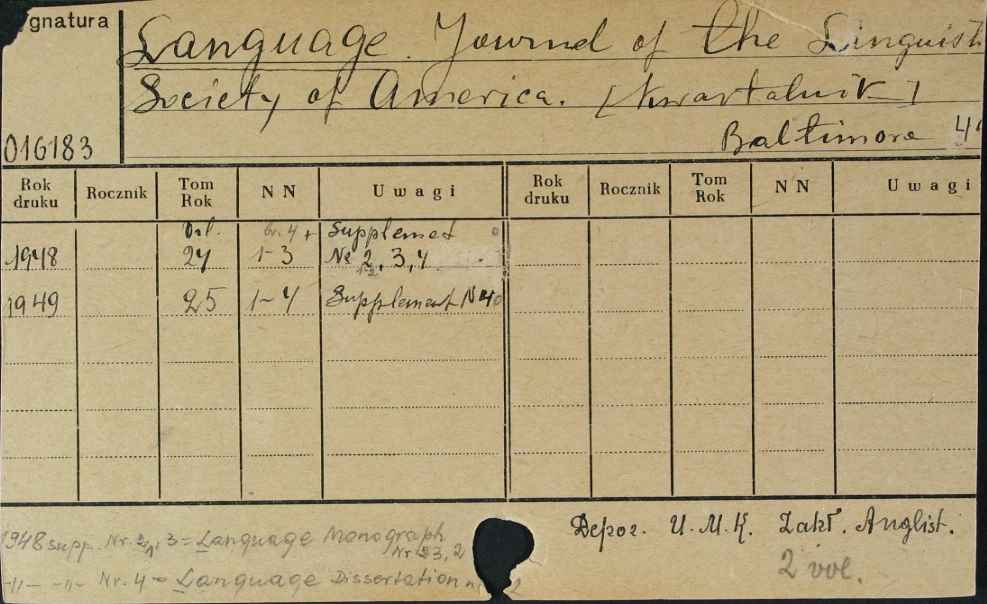 ygnatura
Language. Journal of the Linguisti
Society of America. [Kwartalnik]
016183
Baltimore 4º
Rok druku Rocznik Tom Rok N N Uwagi Rok druku Rocznik Tom Rok N N Uwagi
Vol. br. 4 + Supplement
1948 24 1-3 Nr 2, 3, 4
1949 25 1-4 Supplement N 4
Depoz. U.M.K. Zakł. Anglist.
2 vol.
1948 supp. Nr. 3 = Language Monograph
Nr 23, 2
-11- -11- Nr. 4 = Language Dissertation